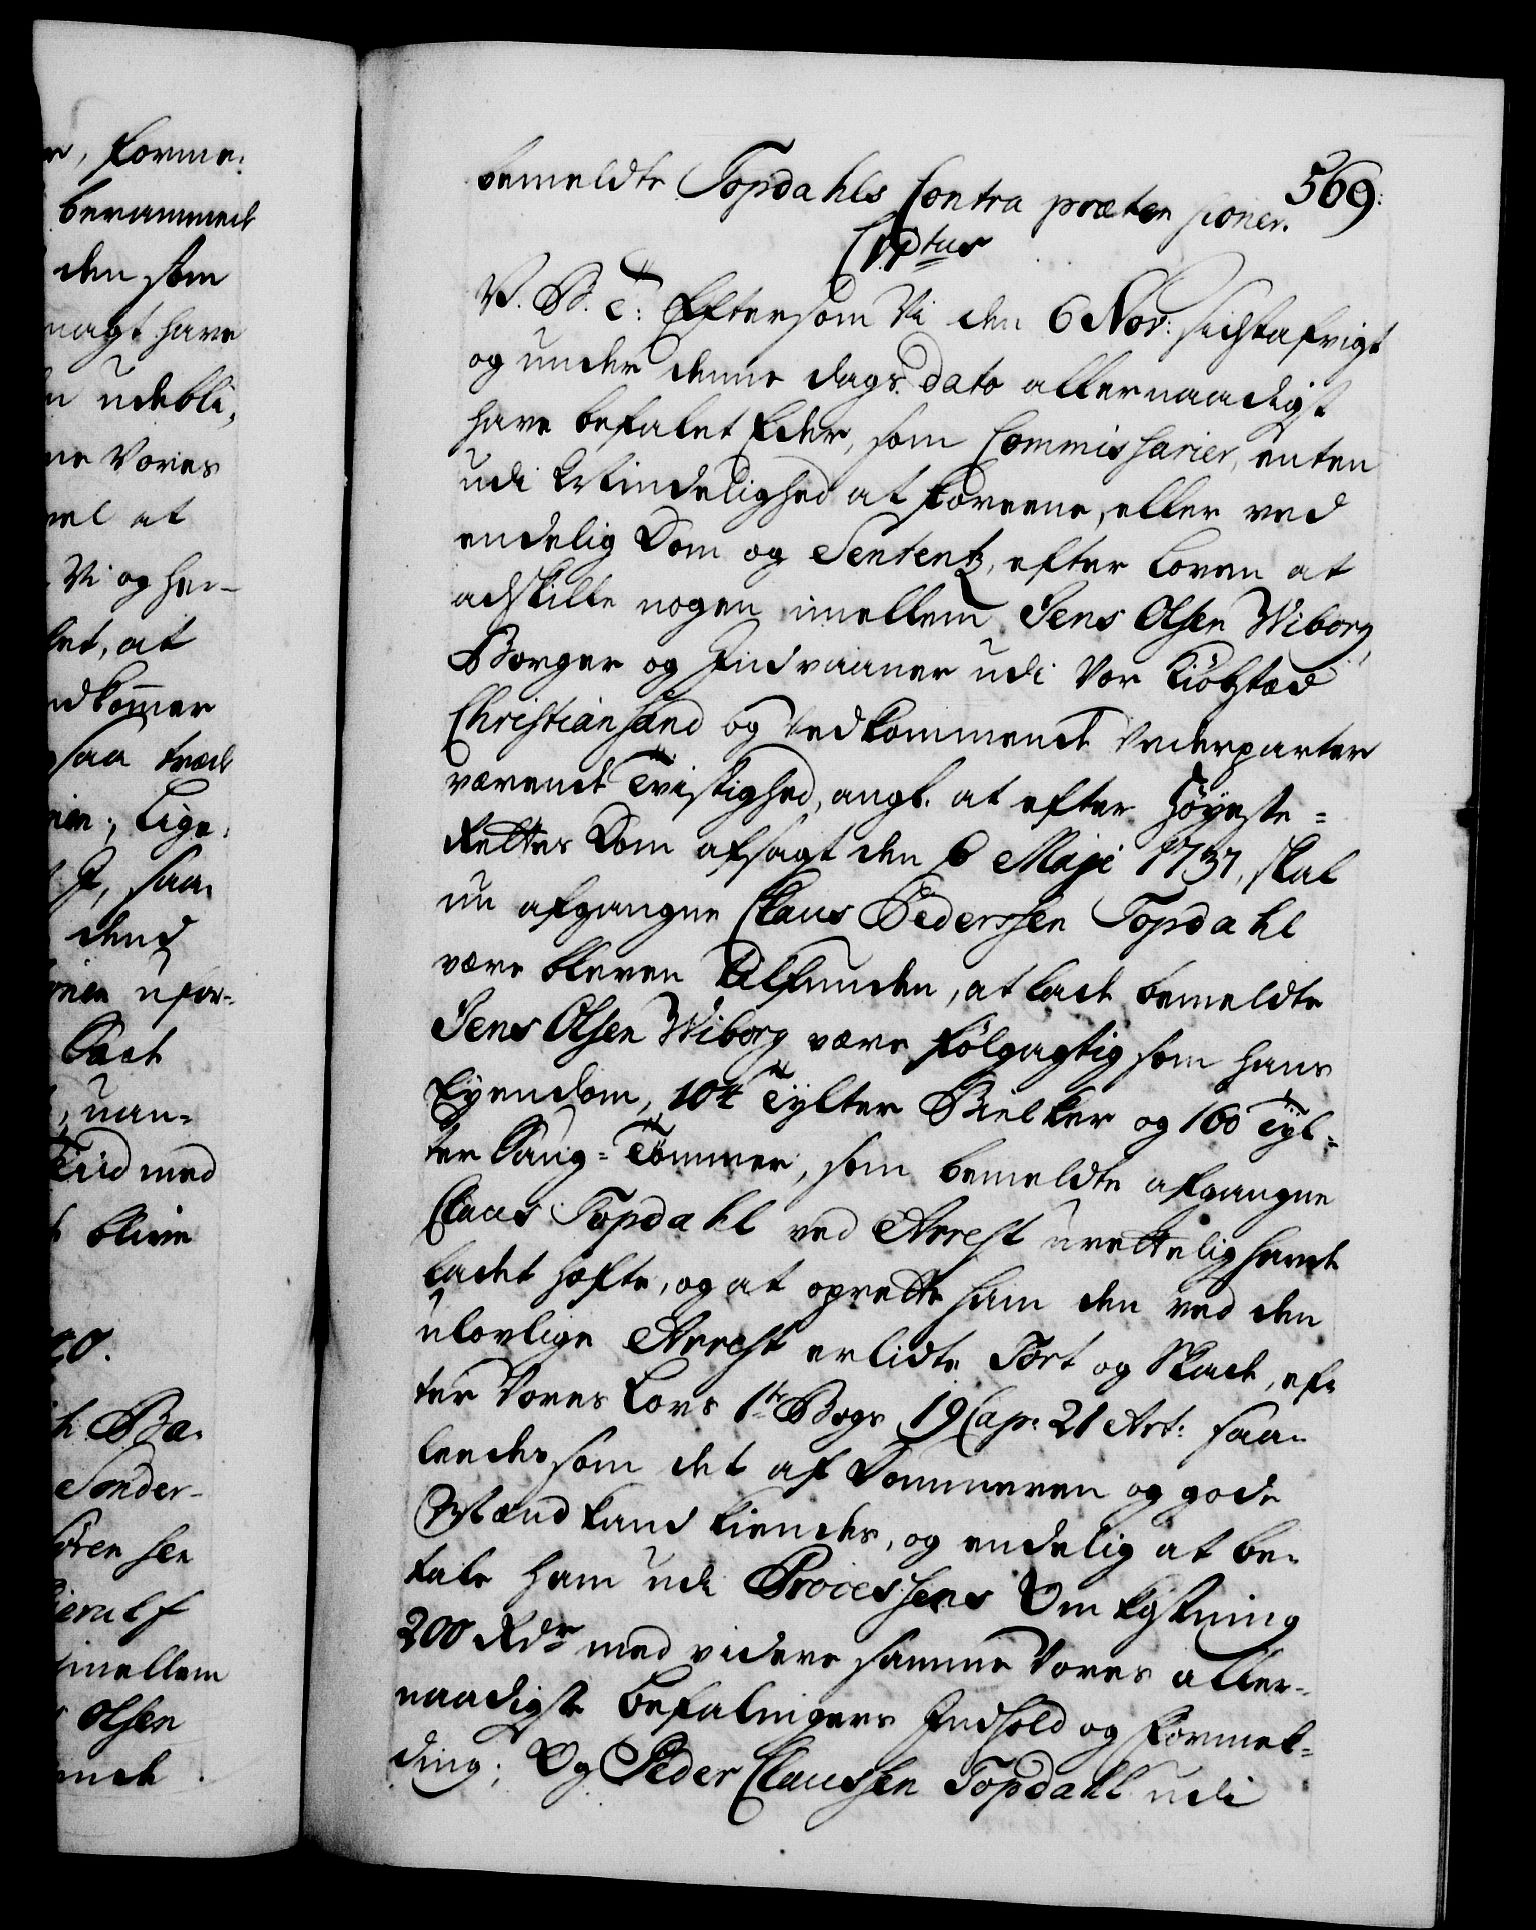 569.
bemeldte Topdahls Contra prætensioner.
C VI ptus
V. B. T: Eftersom Vi den 6 Nov: sidstafvigt
og under denne dags dato allernaadigst
have befalet Eder, som Commissarier, enten
udi Mindelighed at foreene, eller ved
endelig Dom og Sententz, efter Loven at
adskille nogen imellem Jens Olsen Wiborg,
Borger og Indvaaner udi Vor Kiöbstæd
Christiansand og vedkommende Vederparter
værende Tvistighed, angl. at efter Höyeste-
Rettes Dom afsagt den 6 Maji 1737, skal
nu afgangne Claus Pederssen Topdahl
være bleven tilfunden, at lade bemeldte
Jens Olsen Wiborg være fölgagtig som hans
Eyendom, 104 Tylter Bielker og 160 Tyl-
ter Saug-Tömmer, som bemeldte afgangne
Claus Topdahl ved Arrest urettelig hafde
ladet hæfte, og at oprette ham den ved den
ulovlige Arrest erlidte Tort og Skade, ef-
ter Vores Lovs 1te Bogs 19 Cap: 21 Art: saa-
ledes som det af Dommeren og gode
Mænd kand kiendes, og endelig at be-
tale ham udi Processens Omkostning
200 Rdr med videre samme Vores aller-
naadigste Befalingers Indhold og Formel-
ding; Og Peder Claussen Topdahl udi
r, forme-
berammede
den som
magt have
n udebli-
ne Vores
vel at
Vi og her-
let, at
dkommer
saa træde
Lige-
I, saa-
dend
ufor-
Sade
uan-
Tiid med
blive
Ba-
Sönder-
örensen
ierulf
imellem
Olsen
ende